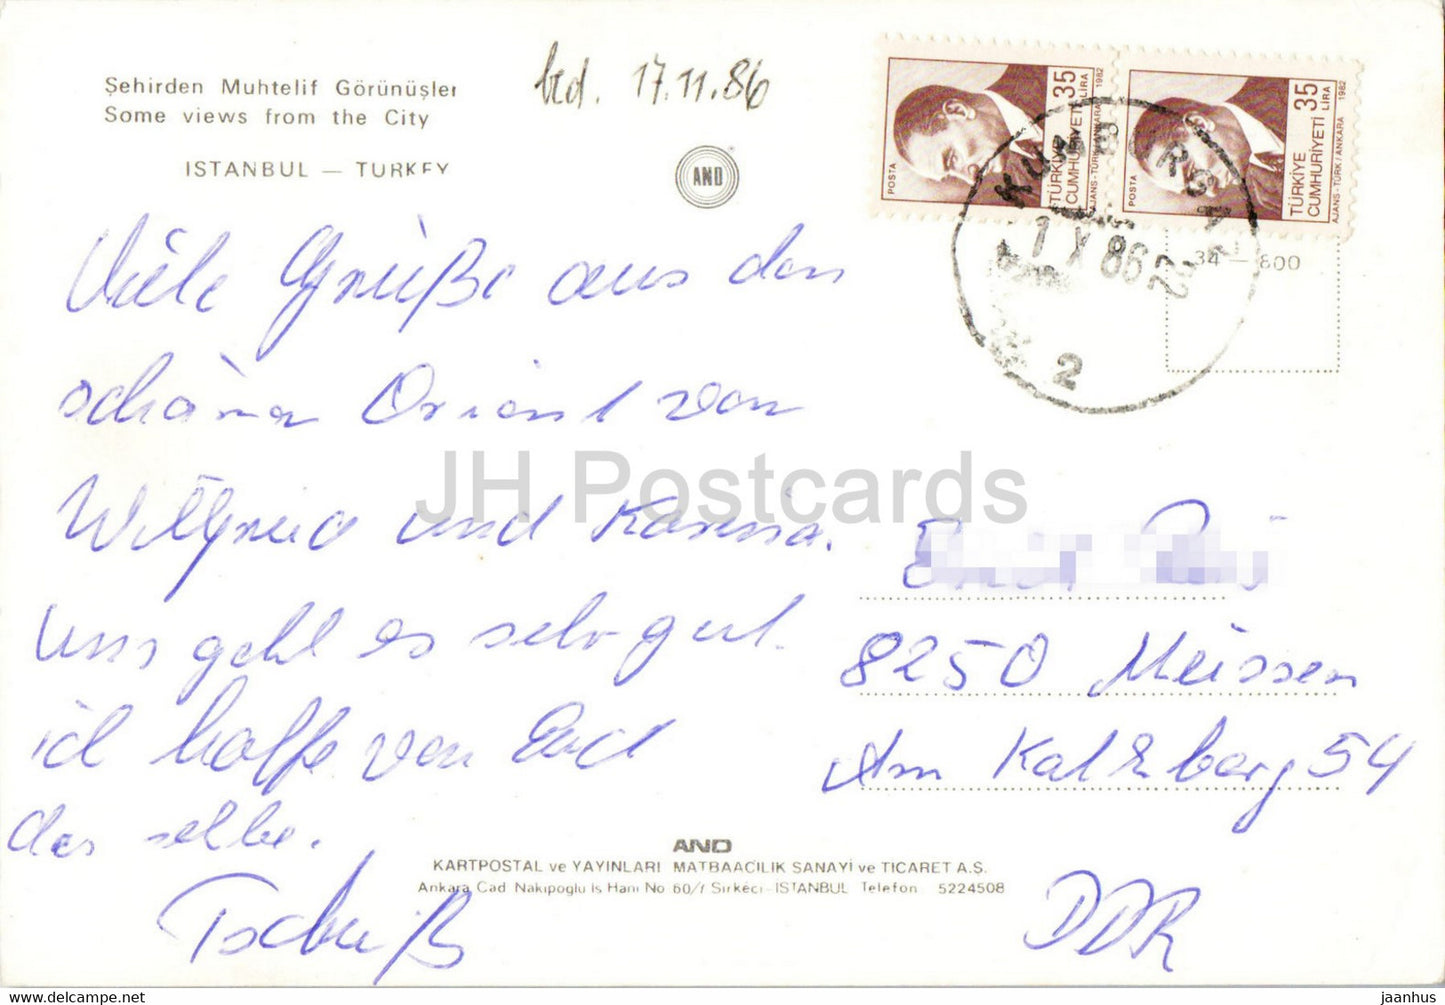 Şehirden Muhtelif Görünüşler
Some views from the City
ISTANBUL — TURKEY
bed. 17.11.86
AND
POSTA
35 LİRA
TÜRKİYE CUMHURİYETİ
AJANS - TÜRK / ANKARA 1982
POSTA
35 LİRA
TÜRKİYE CUMHURİYETİ
AJANS - TÜRK / ANKARA 1982
1 X 86 22
2
34 — 800
Viele Grüße aus den
schönen Orient von
Wilfried und Karina.
Uns geht es sehr gut.
ich hoffe von Euch
das selbe.
Tschüß
8250 Meissen
Am Kalkberg 54
DDR
AND
KARTPOSTAL ve YAYINLARI MATBAACILIK SANAYİ ve TİCARET A.Ş.
Ankara Cad Nakipoglu İs Hanı No 60/7 Sirkeci-İSTANBUL Telefon 5224508
JH Postcards
www.delcampe.net
jaanhus